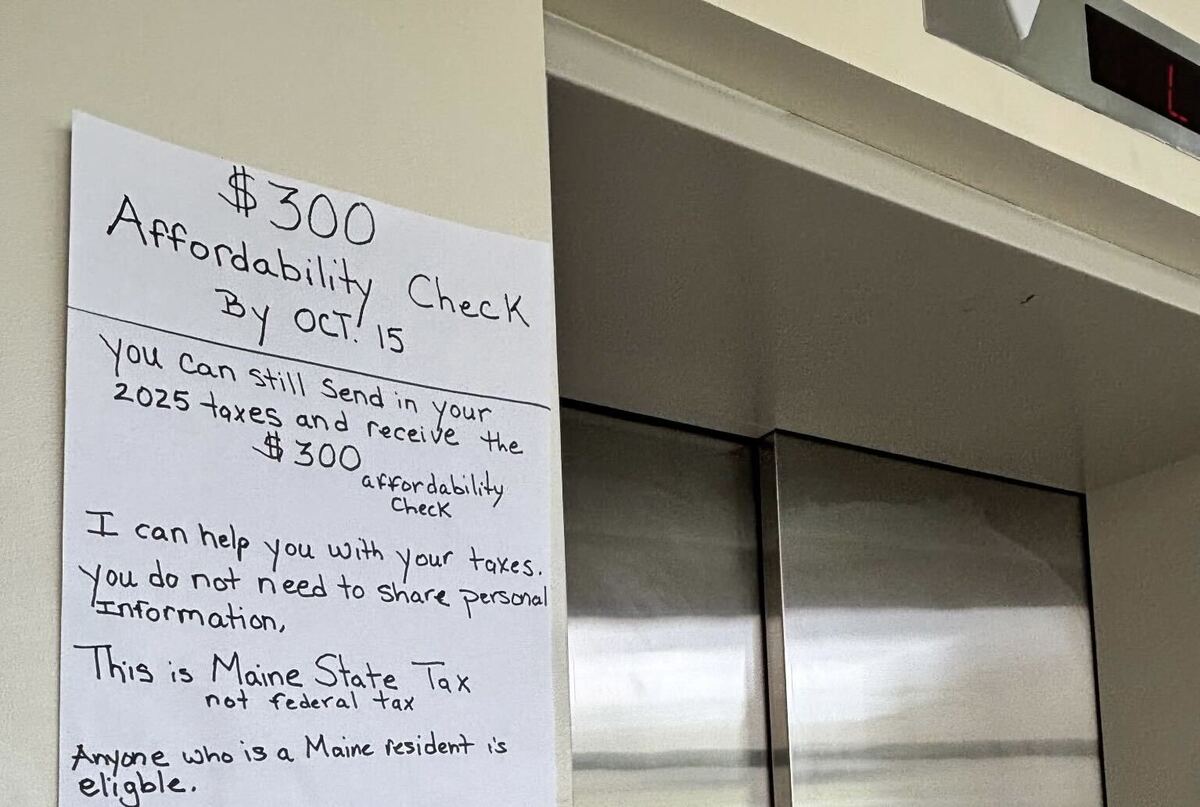 $300
Affordability Check
By OCT. 15
you can still send in your
2025 taxes and receive the
$300
affordability
check
I can help you with your taxes.
you do not need to share personal
Information,
This is Maine State Tax
not federal tax
Anyone who is a Maine resident is
eligble.
L